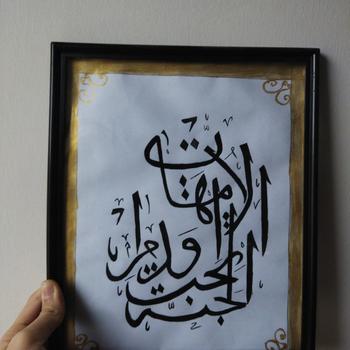 الجنة تحت
أقدام
الأمهات